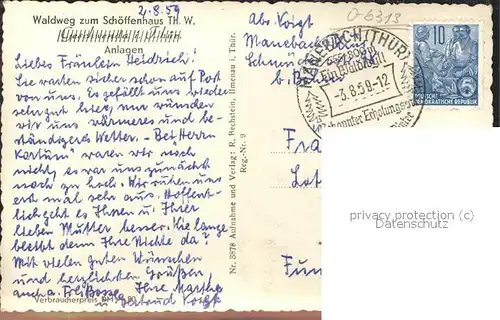 2.8.59
Waldweg zum Schöffenhaus Th. W.
Anlagen
Liebes Fräulein Heidrich!
Sie warten sicher schon auf Post
von uns. Es gefällt uns wieder
sehr gut hier, nur würden
wir uns wärmeres und be-
ständigeres Wetter. - Bei Herrn
"Kortüm" waren wir noch
nicht, es war uns zunächst
noch zu hoch. Wir ruhen uns
erst mal sehr aus. Hoffent-
lich geht es Ihnen u. Ihrer
lieben Mutter besser. Wie lange
bleibt denn Ihre Nichte da?
Mit vielen guten Wünschen
und herzlichsten Grüßen,
auch a. Frl. Ihre Martha
u. Gertrud Voigt
Verbraucherpreis DM
Nr. 3878 Aufnahme und Verlag: R. Bechstein, Ilmenau i. Thür.
Reg.-Nr. 9
Abs. Voigt
Maneba
b.
O 6313
MANEBACH (THÜR)
-3.8.59-12
Bekannter Erholungsort
10
DEUTSCHE
DEMOKRATISCHE REPUBLIK
Fra
privacy protection (c)
Datenschutz